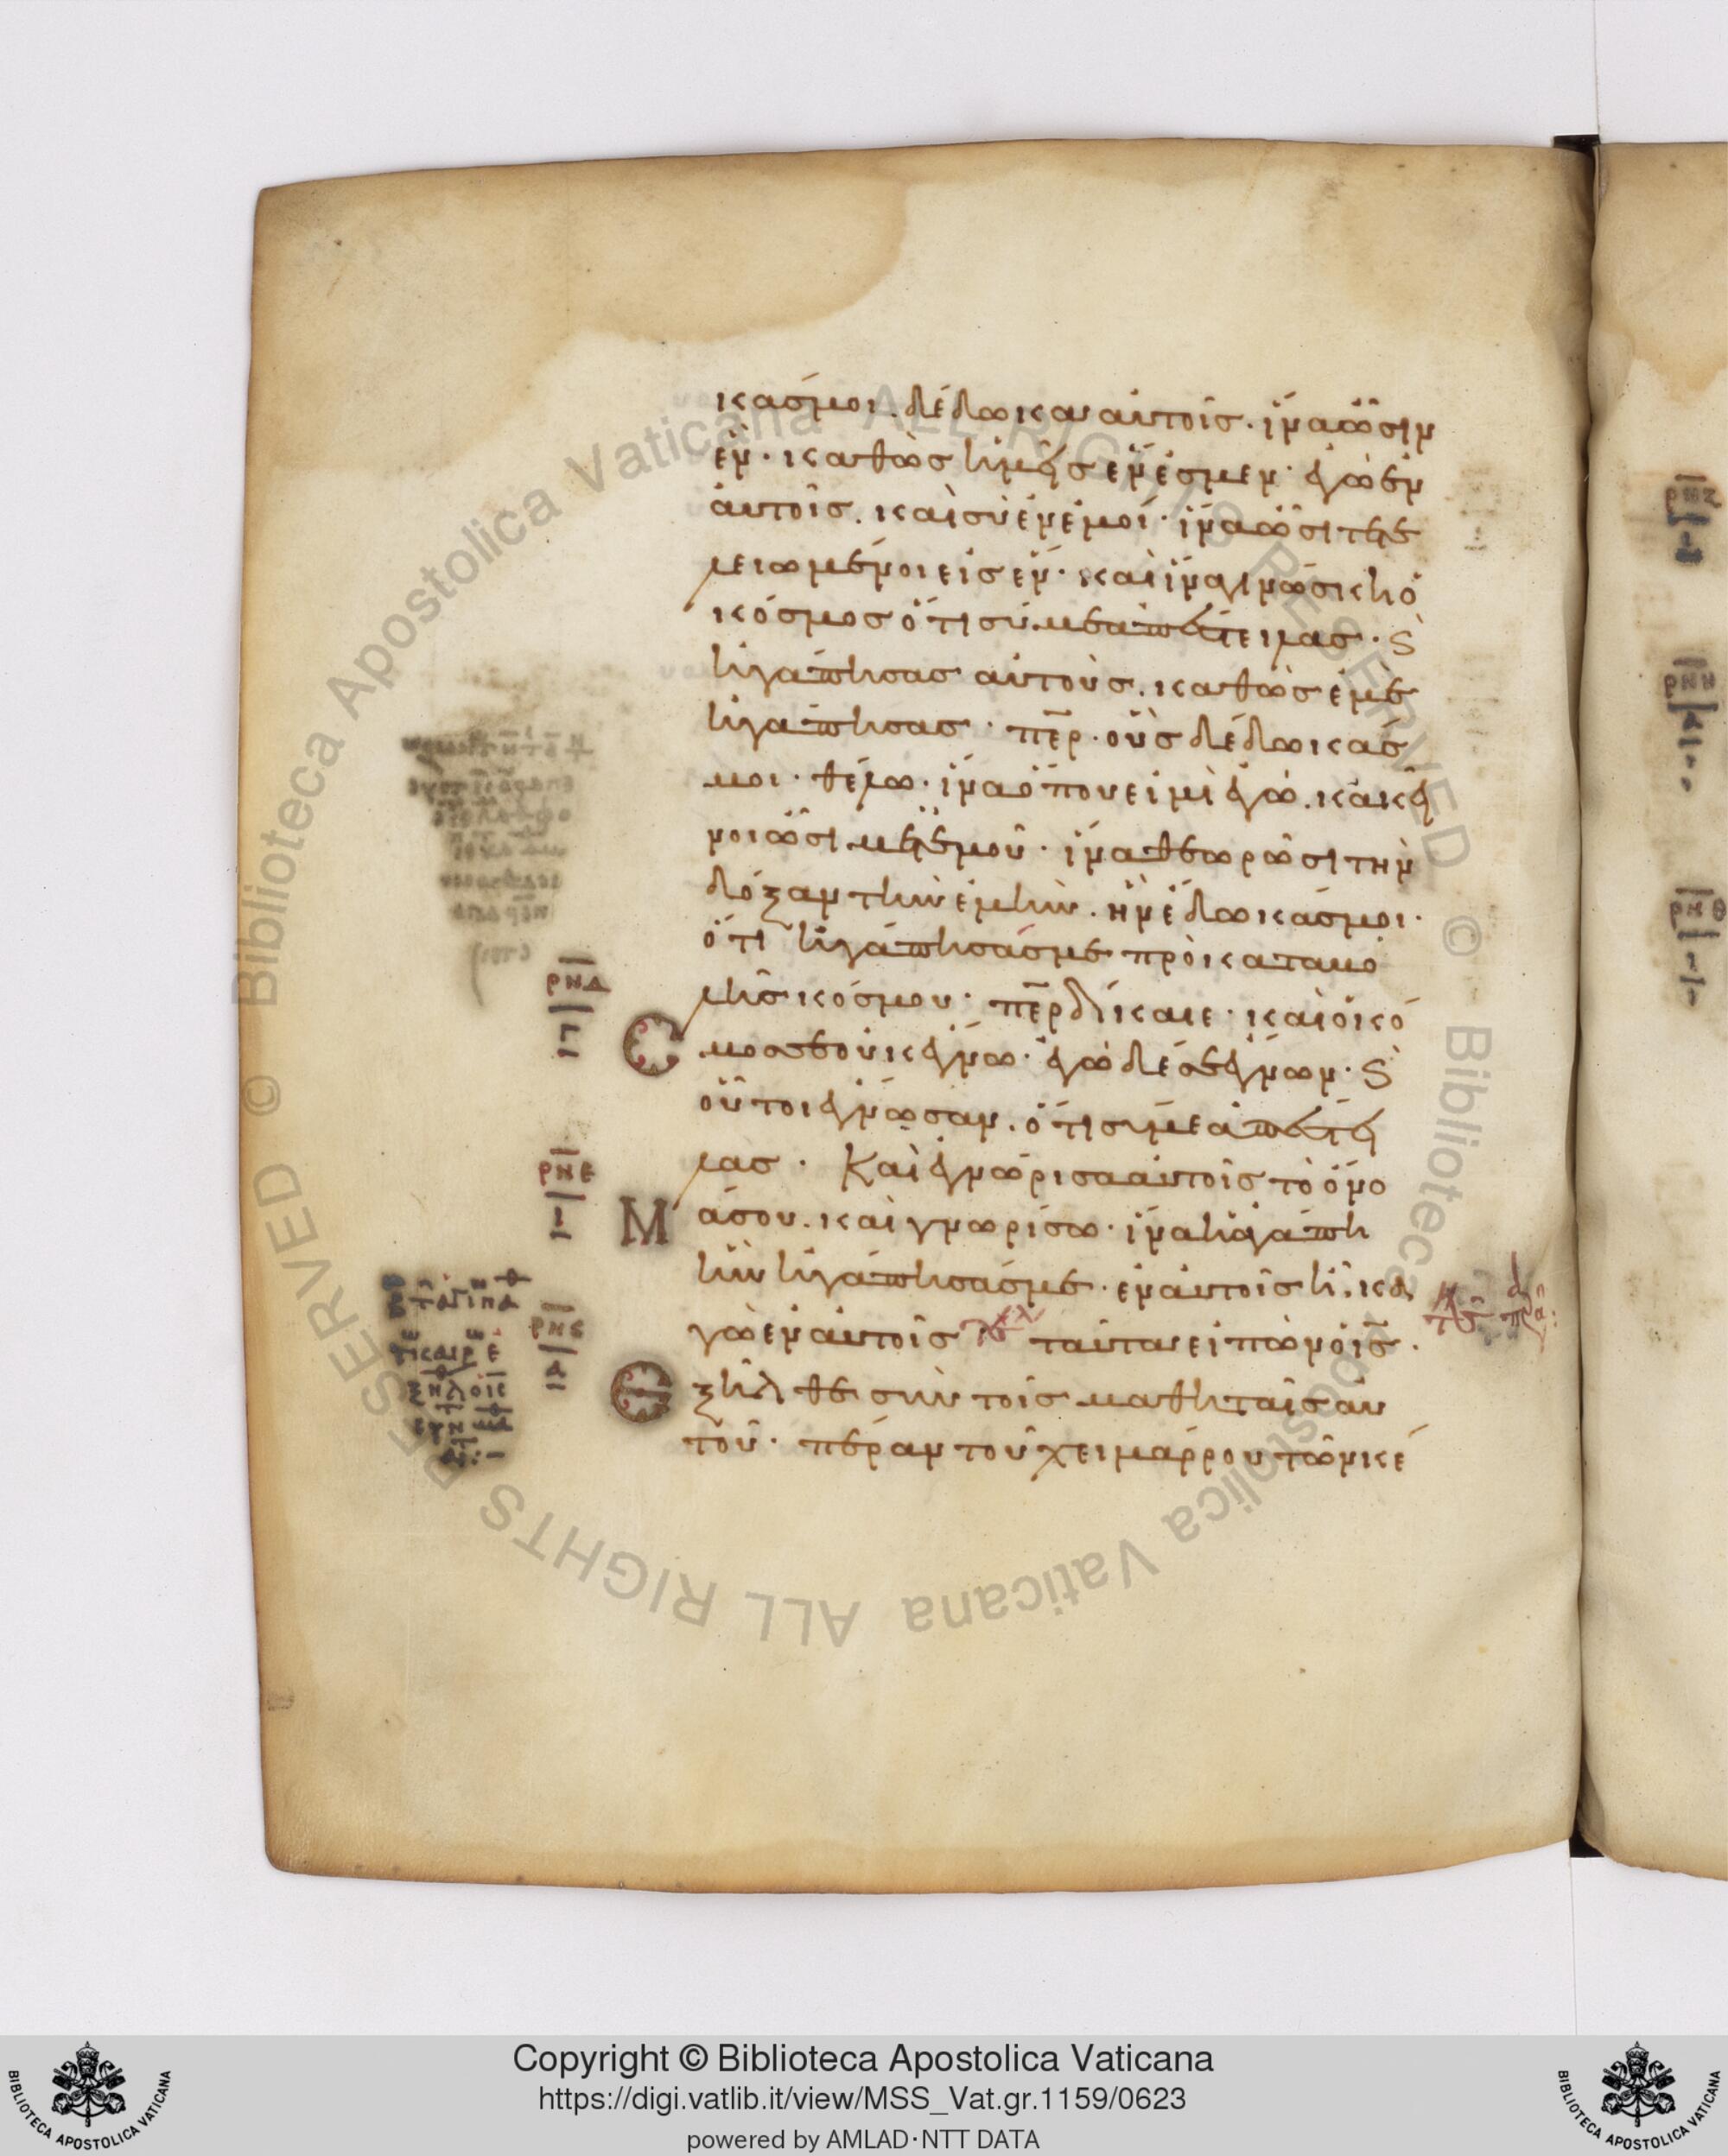 κασ μοι. δέδωκα αὐτοῖς· ἵνα ὦσιν
ἕν· καθὼς ἡμεῖς ἕν ἐσμεν· ἐγὼ ἐν
αὐτοῖς. καὶ σὺ ἐν ἐμοί· ἵνα ὦσι τετε
λειωμένοι εἰς ἕν· καὶ ἵνα γινώσκη ὁ
κόσμος ὅτι σύ με ἀπέστειλας· ϛ
ἠγάπησας αὐτοὺς. καθὼς ἐμὲ
ἠγάπησας· περ· οὓς δέδωκάς
μοι· θέλω· ἵνα ὅπου εἰμὶ ἐγώ. κἀκεῖ
νοι ὦσι μετ' ἐμοῦ· ἵνα θεωρῶσι τὴν
δόξαν τὴν ἐμήν. ἣν ἔδωκάς μοι·
ὅτι ἠγάπησάς με πρὸ καταβο
λῆς κόσμου· περ δίκαιε· καὶ ὁ κό
μος σε οὐκ ἔγνω· ἐγὼ δέ σε ἔγνων· ϛ
οὗτοι ἔγνωσαν. ὅτι σύ με ἀπέστει
λας· Καὶ ἐγνώρισα αὐτοῖς τὸ ὄνο
μά σου. καὶ γνωρίσω· ἵνα ἡ ἀγάπη
ἣν ἠγάπησάς με· ἐν αὐτοῖς ἦ. κα
γὼ ἐν αὐτοῖς ταῦτα εἰπὼν ὁ ις·
ἐξῆλθε σὺν τοῖς μαθηταῖς αὐ
τοῦ· πέραν τοῦ χειμάρρου τῶν κέ
ρνδ
ρνε
ρνϛ
ρνζ
ρνη
ρνθ
Copyright © Biblioteca Apostolica Vaticana
https://digi.vatlib.it/view/MSS_Vat.gr.1159/0623
powered by AMLAD·NTT DATA
BIBLIOTECA APOSTOLICA VATICANA
BIBLIOTECA APOSTOLICA VATICANA
© Biblioteca Apostolica Vaticana ALL RIGHTS RESERVED © Biblioteca Apostolica Vaticana ALL RIGHTS RESERVED